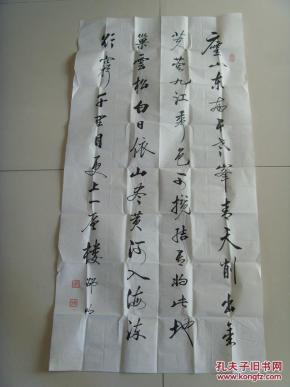 庐山东南五老峰青天削出金
芙蓉九江秀色可揽结吾将此地
巢云松白日依山尽黄河入海流
欲穷千里目更上一层楼
孔夫子旧书网